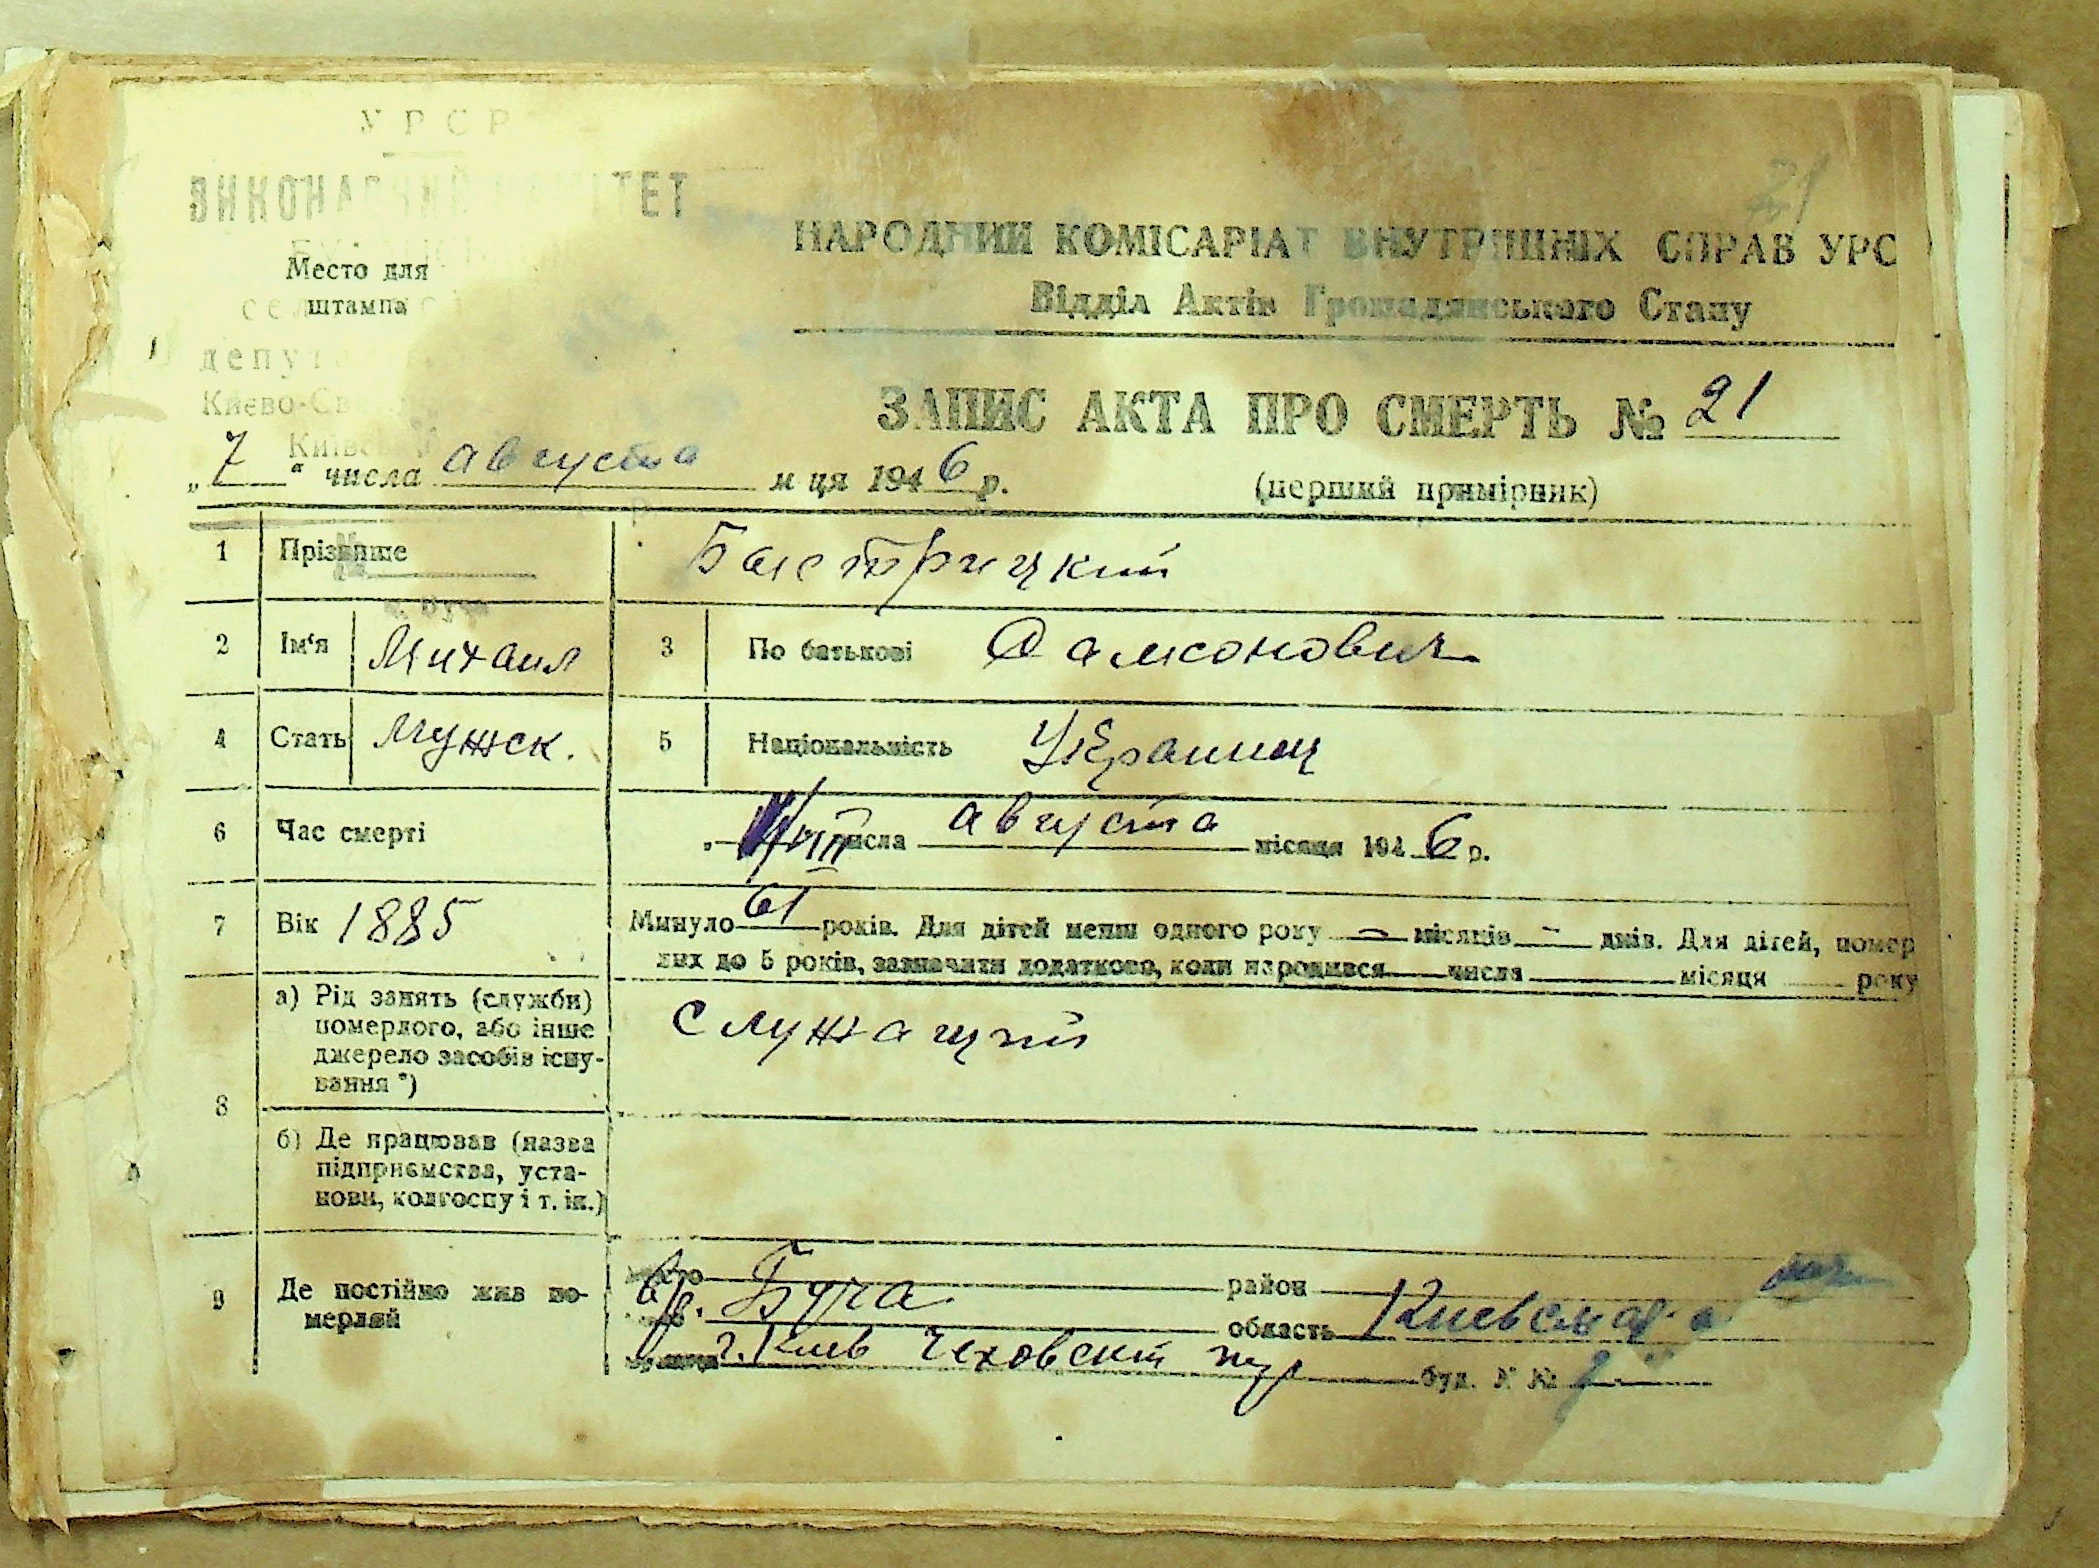 УРСР
21
ВИКОНАВЧИЙ КОМІТЕТ
НАРОДНИЙ КОМІСАРІАТ ВНУТРІШНІХ СПРАВ УРС
Место для
штампа
Відділ Актів Громадянського Стану
депут
Києво-Св
ЗАПИС АКТА ПРО СМЕРТЬ № 21
Київс
„7“ числа августа м ця 1946 р.
(перший примірник)
1 Прізвище Быстрицкий
м. Буча
2 Ім'я Михаил 3 По батькові Самсонович
4 Стать Мужск. 5 Національність Украинец
6 Час смерті числа августа місяця 1946 р.
7 Вік 1885 Минуло 61 років. Для дітей менш одного року — місяців — днів. Для дітей, помер
лих до 5 років, зазначити додатково, коли народився числа місяця року
8 а) Рід занять (служби)
померлого, або інше
джерело засобів існу-
вання *)
служащий
б) Де працював (назва
підприємства, уста-
нови, колгоспу і т. ін.)
9 Де постійно жив по-
мерлий
місто Буча район
область Киевская
вулиця г. Киев Чеховский пер буд. №